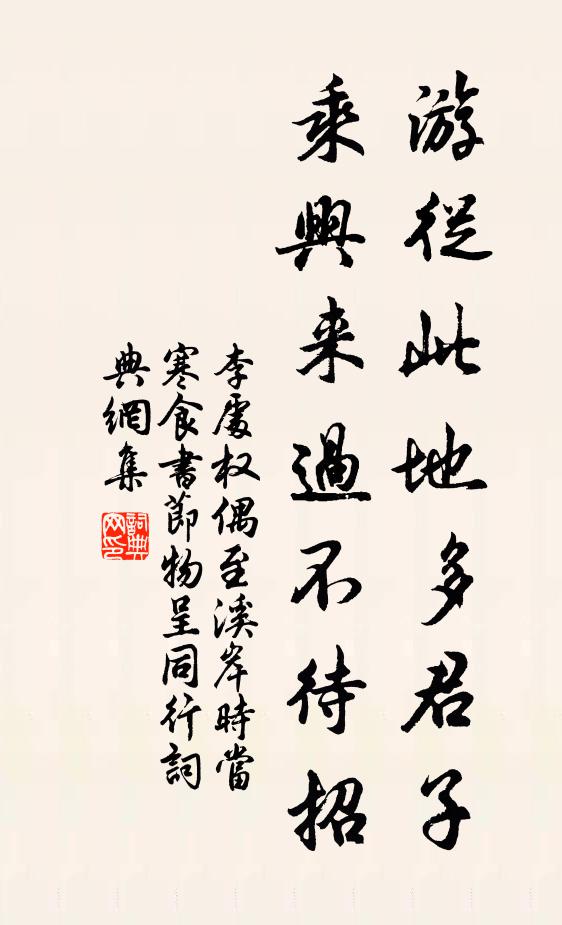 游從此地多君子
乘興来過不待招
李處权偶至溪岸時當
寒食書節物呈同行詞
典網集
詞典
网印